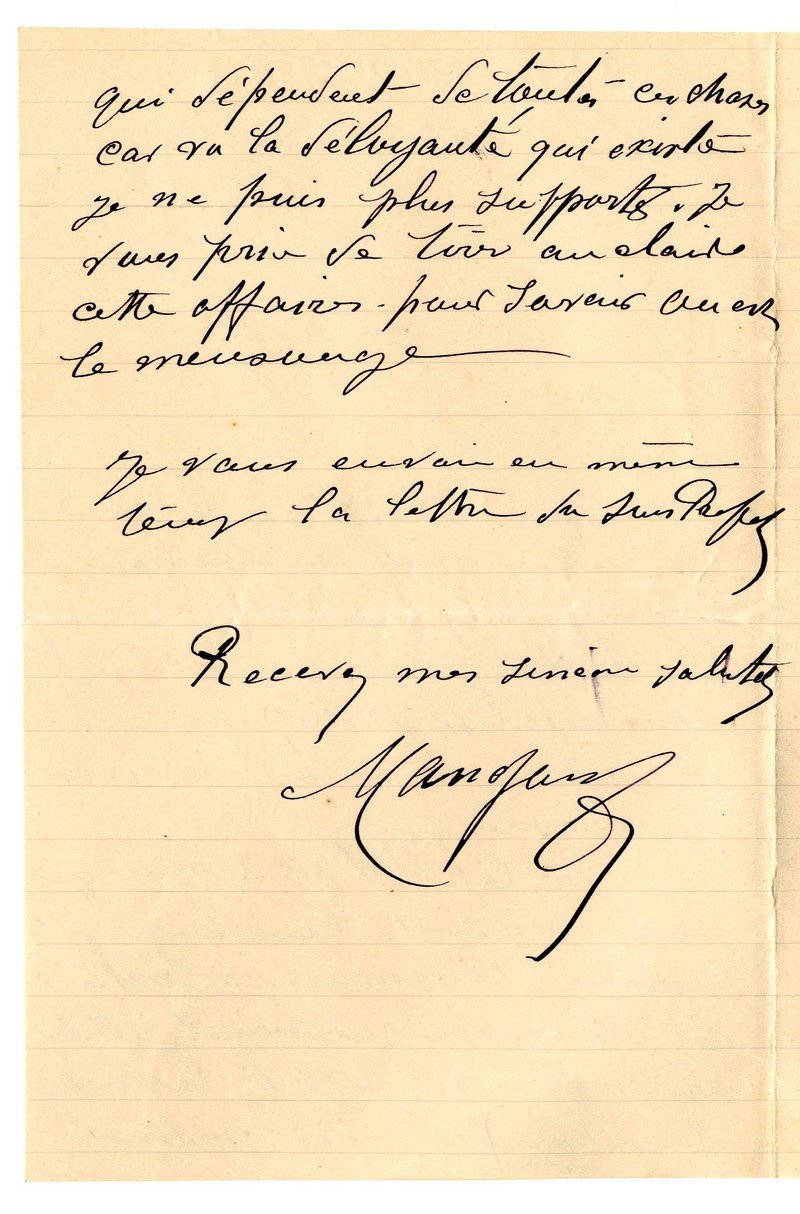 qui dépendent de toutes ces choses
car vu la déloyauté qui existe
je ne puis plus supporter. Je
vous prie de tirer au claire
cette affaires. pour savoir ou est
le mensonge
Je vous envoie en même
temps la lettre du Sous Préfet
Recevez mes sincère salutat